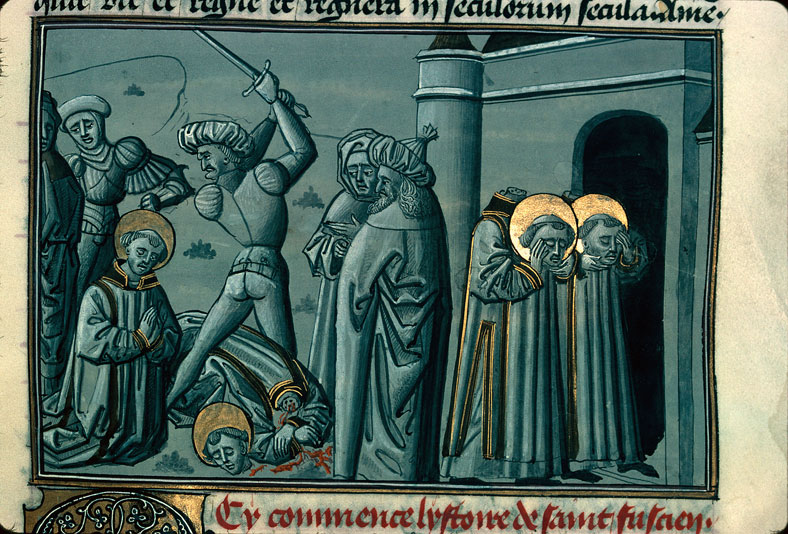 quit vit et regne et regnera in seculorum secula. Ame.
Cy commence lystoire de saint fuscien.